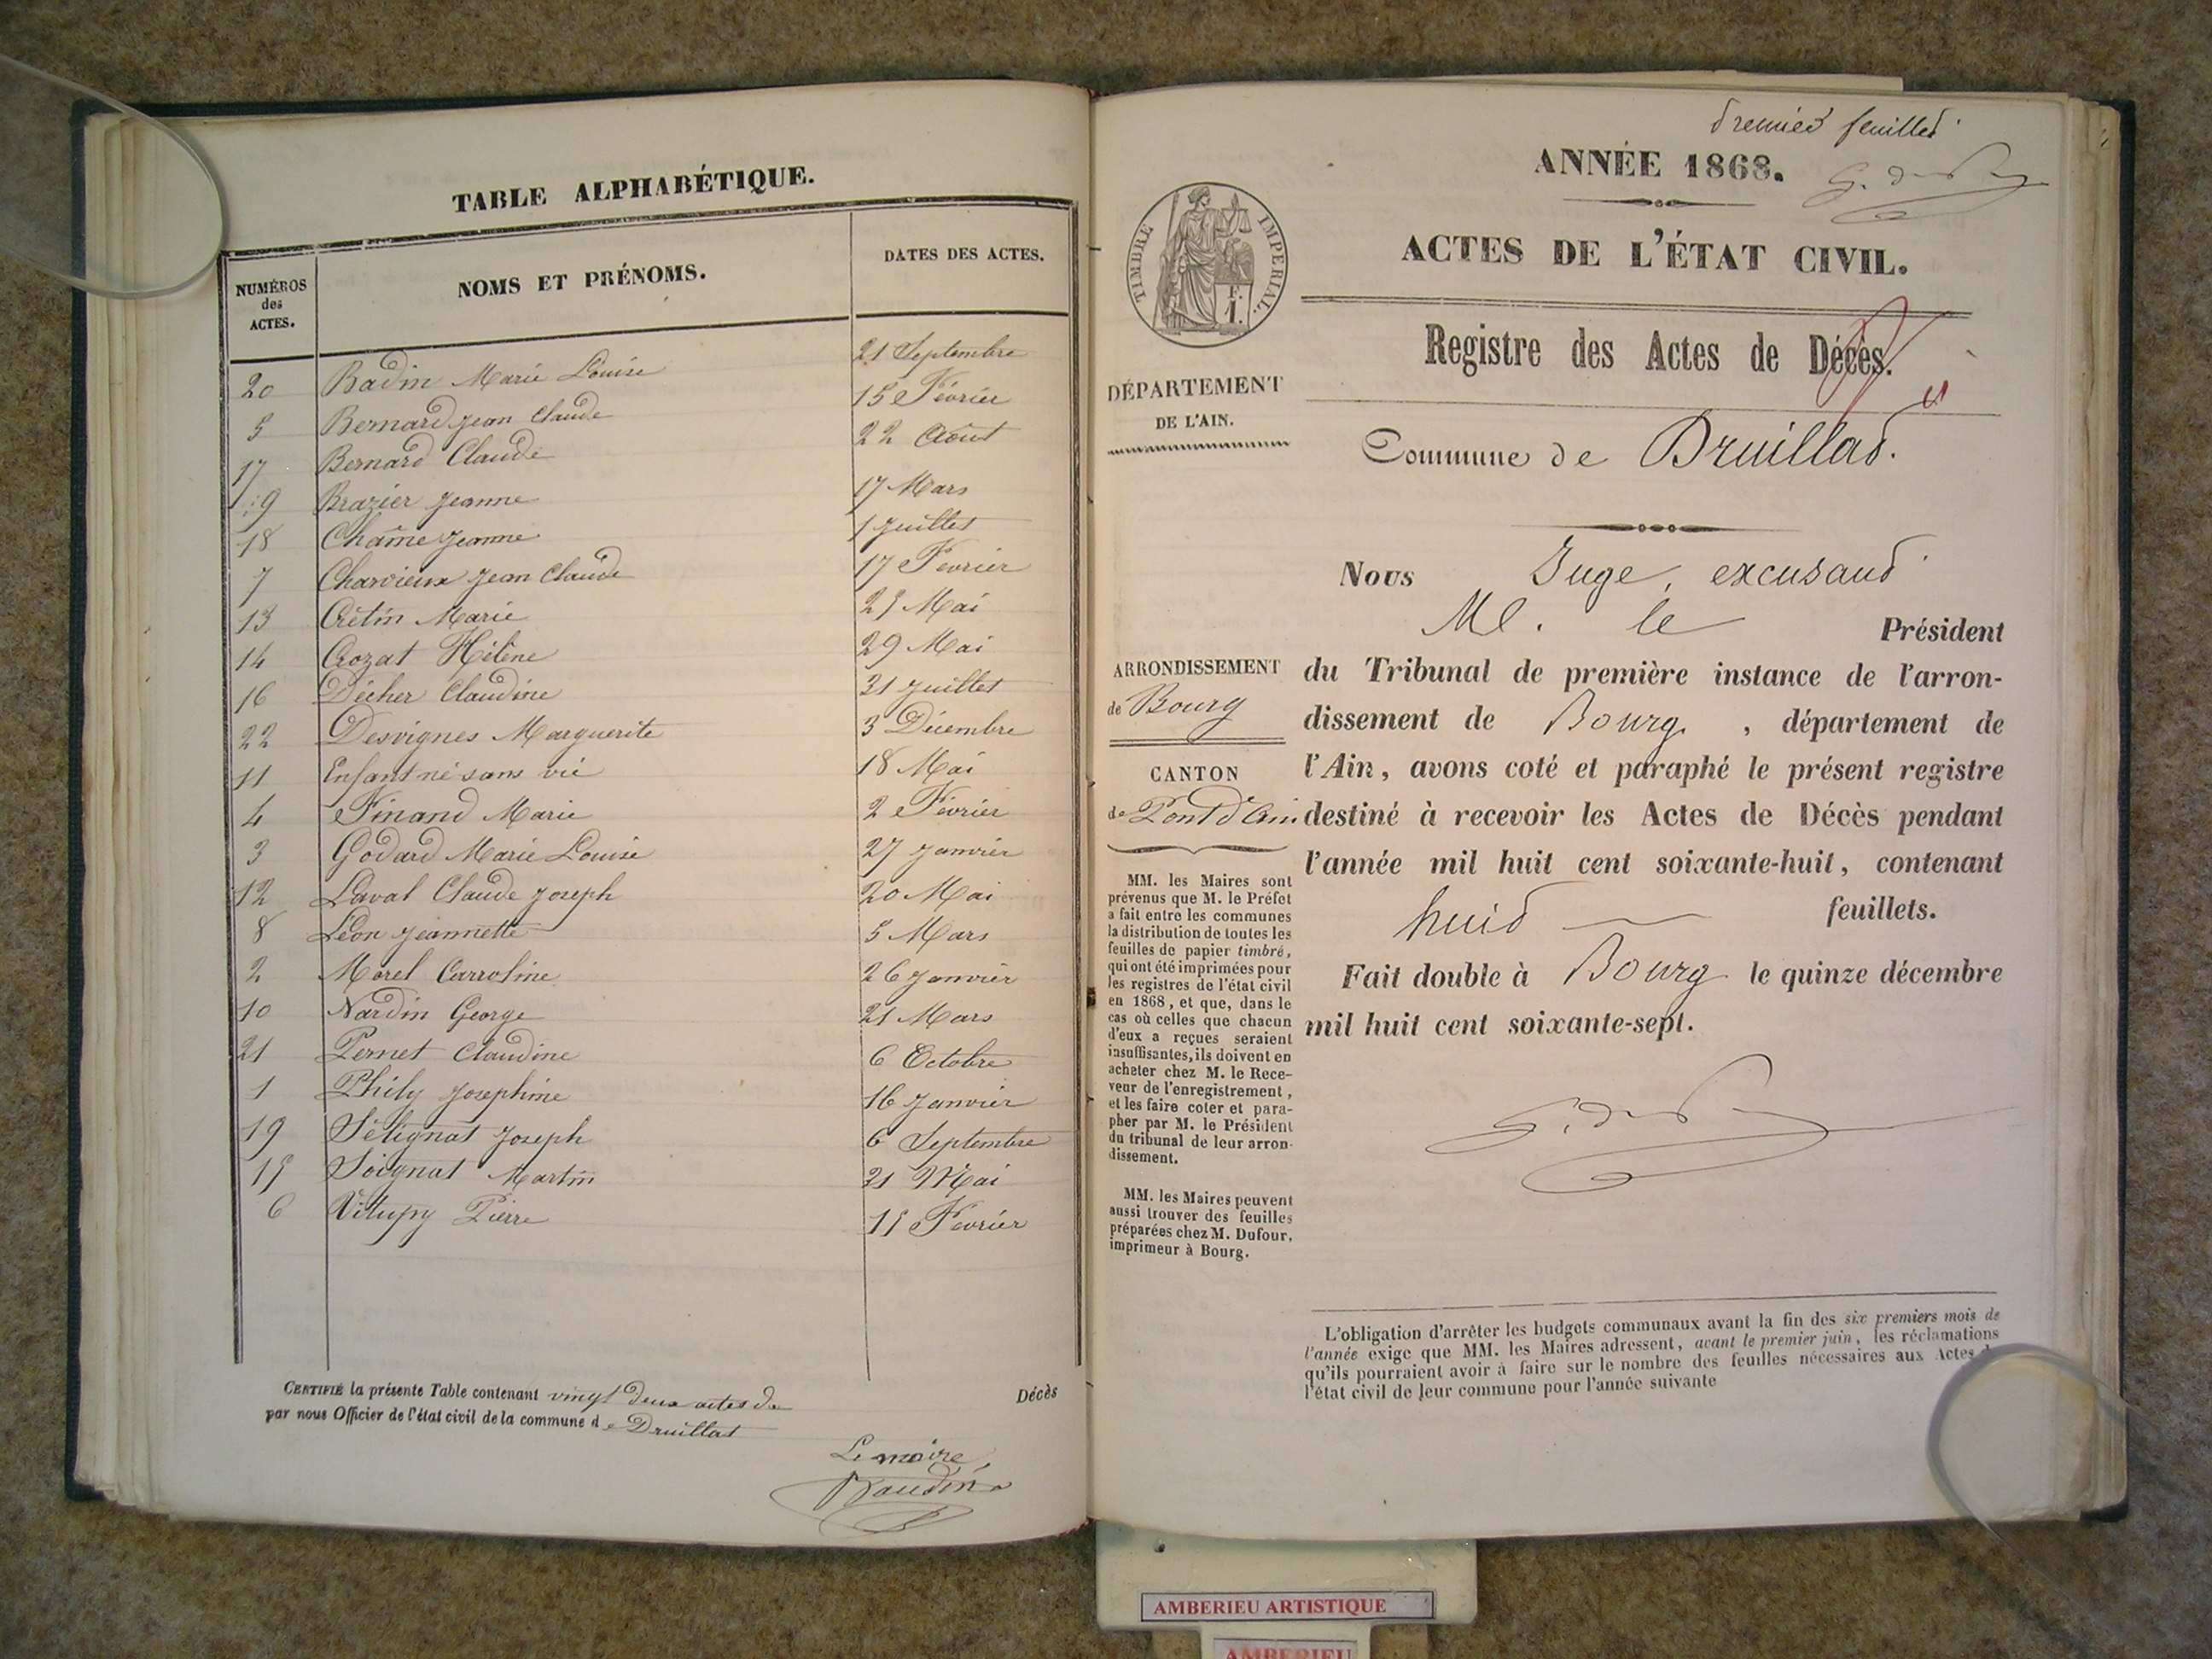 TABLE ALPHABÉTIQUE.
NUMÉROS des ACTES. NOMS ET PRÉNOMS. DATES DES ACTES.
20 Badin Marie Louise 21 Septembre
5 Bernard Jean Claude 15 Février
17 Bernard Claude 22 Août
9 Brazier Jeanne 17 Mars
18 Chame Jeanne 1 Juillet
7 Charvieux Jean Claude 17 Février
13 Crétin Marie 25 Mai
14 Crozat Hélène 29 Mai
16 Décher Claudine 31 Juillet
22 Desvignes Marguerite 3 Décembre
11 Enfant né sans vie 18 Mai
4 Finand Marie 2 Février
3 Godard Marie Louise 27 Janvier
12 Laval Claude Joseph 20 Mai
8 Léon Jeannette 5 Mars
2 Morel Carroline 26 Janvier
10 Nardin George 21 Mars
21 Pernet Claudine 6 Octobre
1 Phily Josephine 16 Janvier
19 Sélignat Joseph 6 Septembre
15 Soignat Martin 31 Mai
6 Vitupy Pierre 15 Février
CERTIFIÉ la présente Table contenant vingt deux actes de Décès
par nous Officier de l'état civil de la commune de Druillat
Le maire,
Baudin
premier feuillet
ANNÉE 1868.
ACTES DE L'ÉTAT CIVIL.
TIMBRE IMPERIAL.
F.
1.
Registre des Actes de Décès.
DÉPARTEMENT
DE L'AIN.
Commune de Druillat.
Nous Juge, excusant
M. le Président
ARRONDISSEMENT
de Bourg
CANTON
de Pont d'Ain
du Tribunal de première instance de l'arron-
dissement de Bourg, département de
l'Ain, avons coté et paraphé le présent registre
destiné à recevoir les Actes de Décès pendant
l'année mil huit cent soixante-huit, contenant
huit feuillets.
Fait double à Bourg le quinze décembre
mil huit cent soixante-sept.
MM. les Maires sont
prévenus que M. le Préfet
a fait entre les communes
la distribution de toutes les
feuilles de papier timbré,
qui ont été imprimées pour
les registres de l'état civil
en 1868, et que, dans le
cas où celles que chacun
d'eux a reçues seraient
insuffisantes, ils doivent en
acheter chez M. le Rece-
veur de l'enregistrement,
et les faire coter et para-
pher par M. le Président
du tribunal de leur arron-
dissement.
MM. les Maires peuvent
aussi trouver des feuilles
préparées chez M. Dufour,
imprimeur à Bourg.
L'obligation d'arrêter les budgets communaux avant la fin des six premiers mois de
l'année exige que MM. les Maires adressent, avant le premier juin, les réclamations
qu'ils pourraient avoir à faire sur le nombre des feuilles nécessaires aux Actes
l'état civil de leur commune pour l'année suivante
AMBERIEU ARTISTIQUE
AMBERIEU